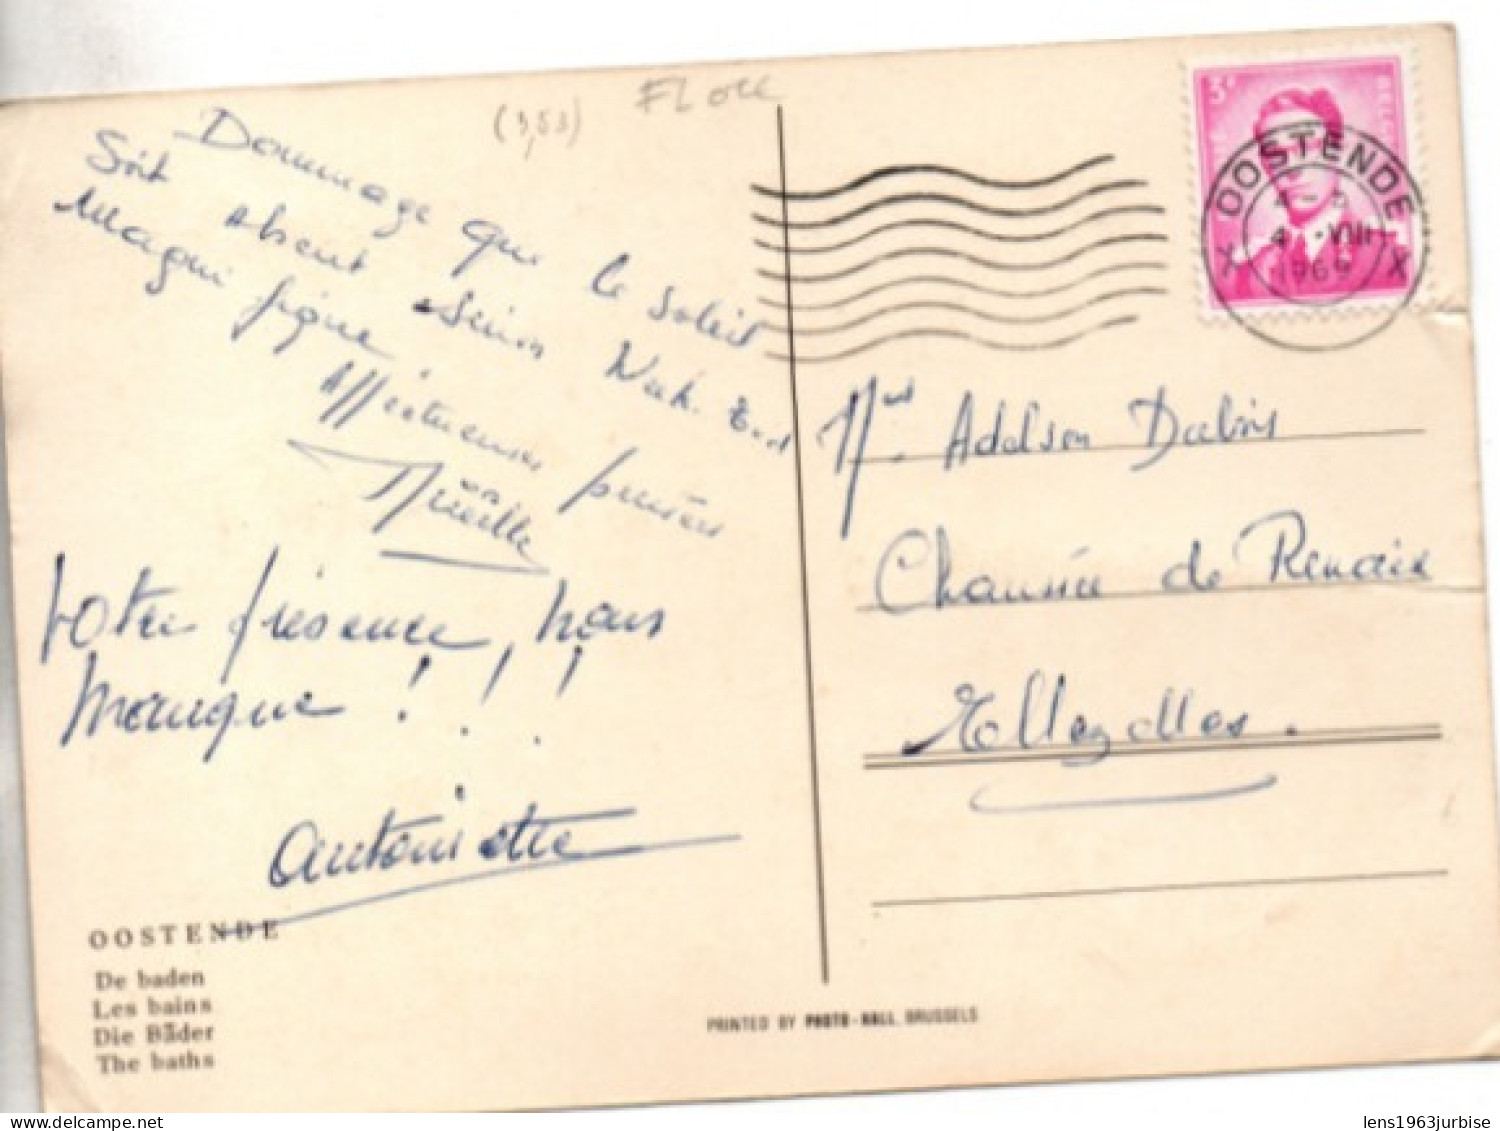 (3,53) FLOCC
Dommage que le soleil
Soit absent Sinon Week-End
Magnifique
Affectueuses pensées
Mireille
Votre présence, nous
manque ! ! !
Antoinette
OOSTENDE
De baden
Les bains
Die Bäder
The baths
PRINTED BY PHOTO-HALL, BRUSSELS
3F
X OOSTENDE X
4-5
4 -VIII
1969
Adelson Dubois
Chaussée de Renaix
Ellezelles.
lens1963jurbise